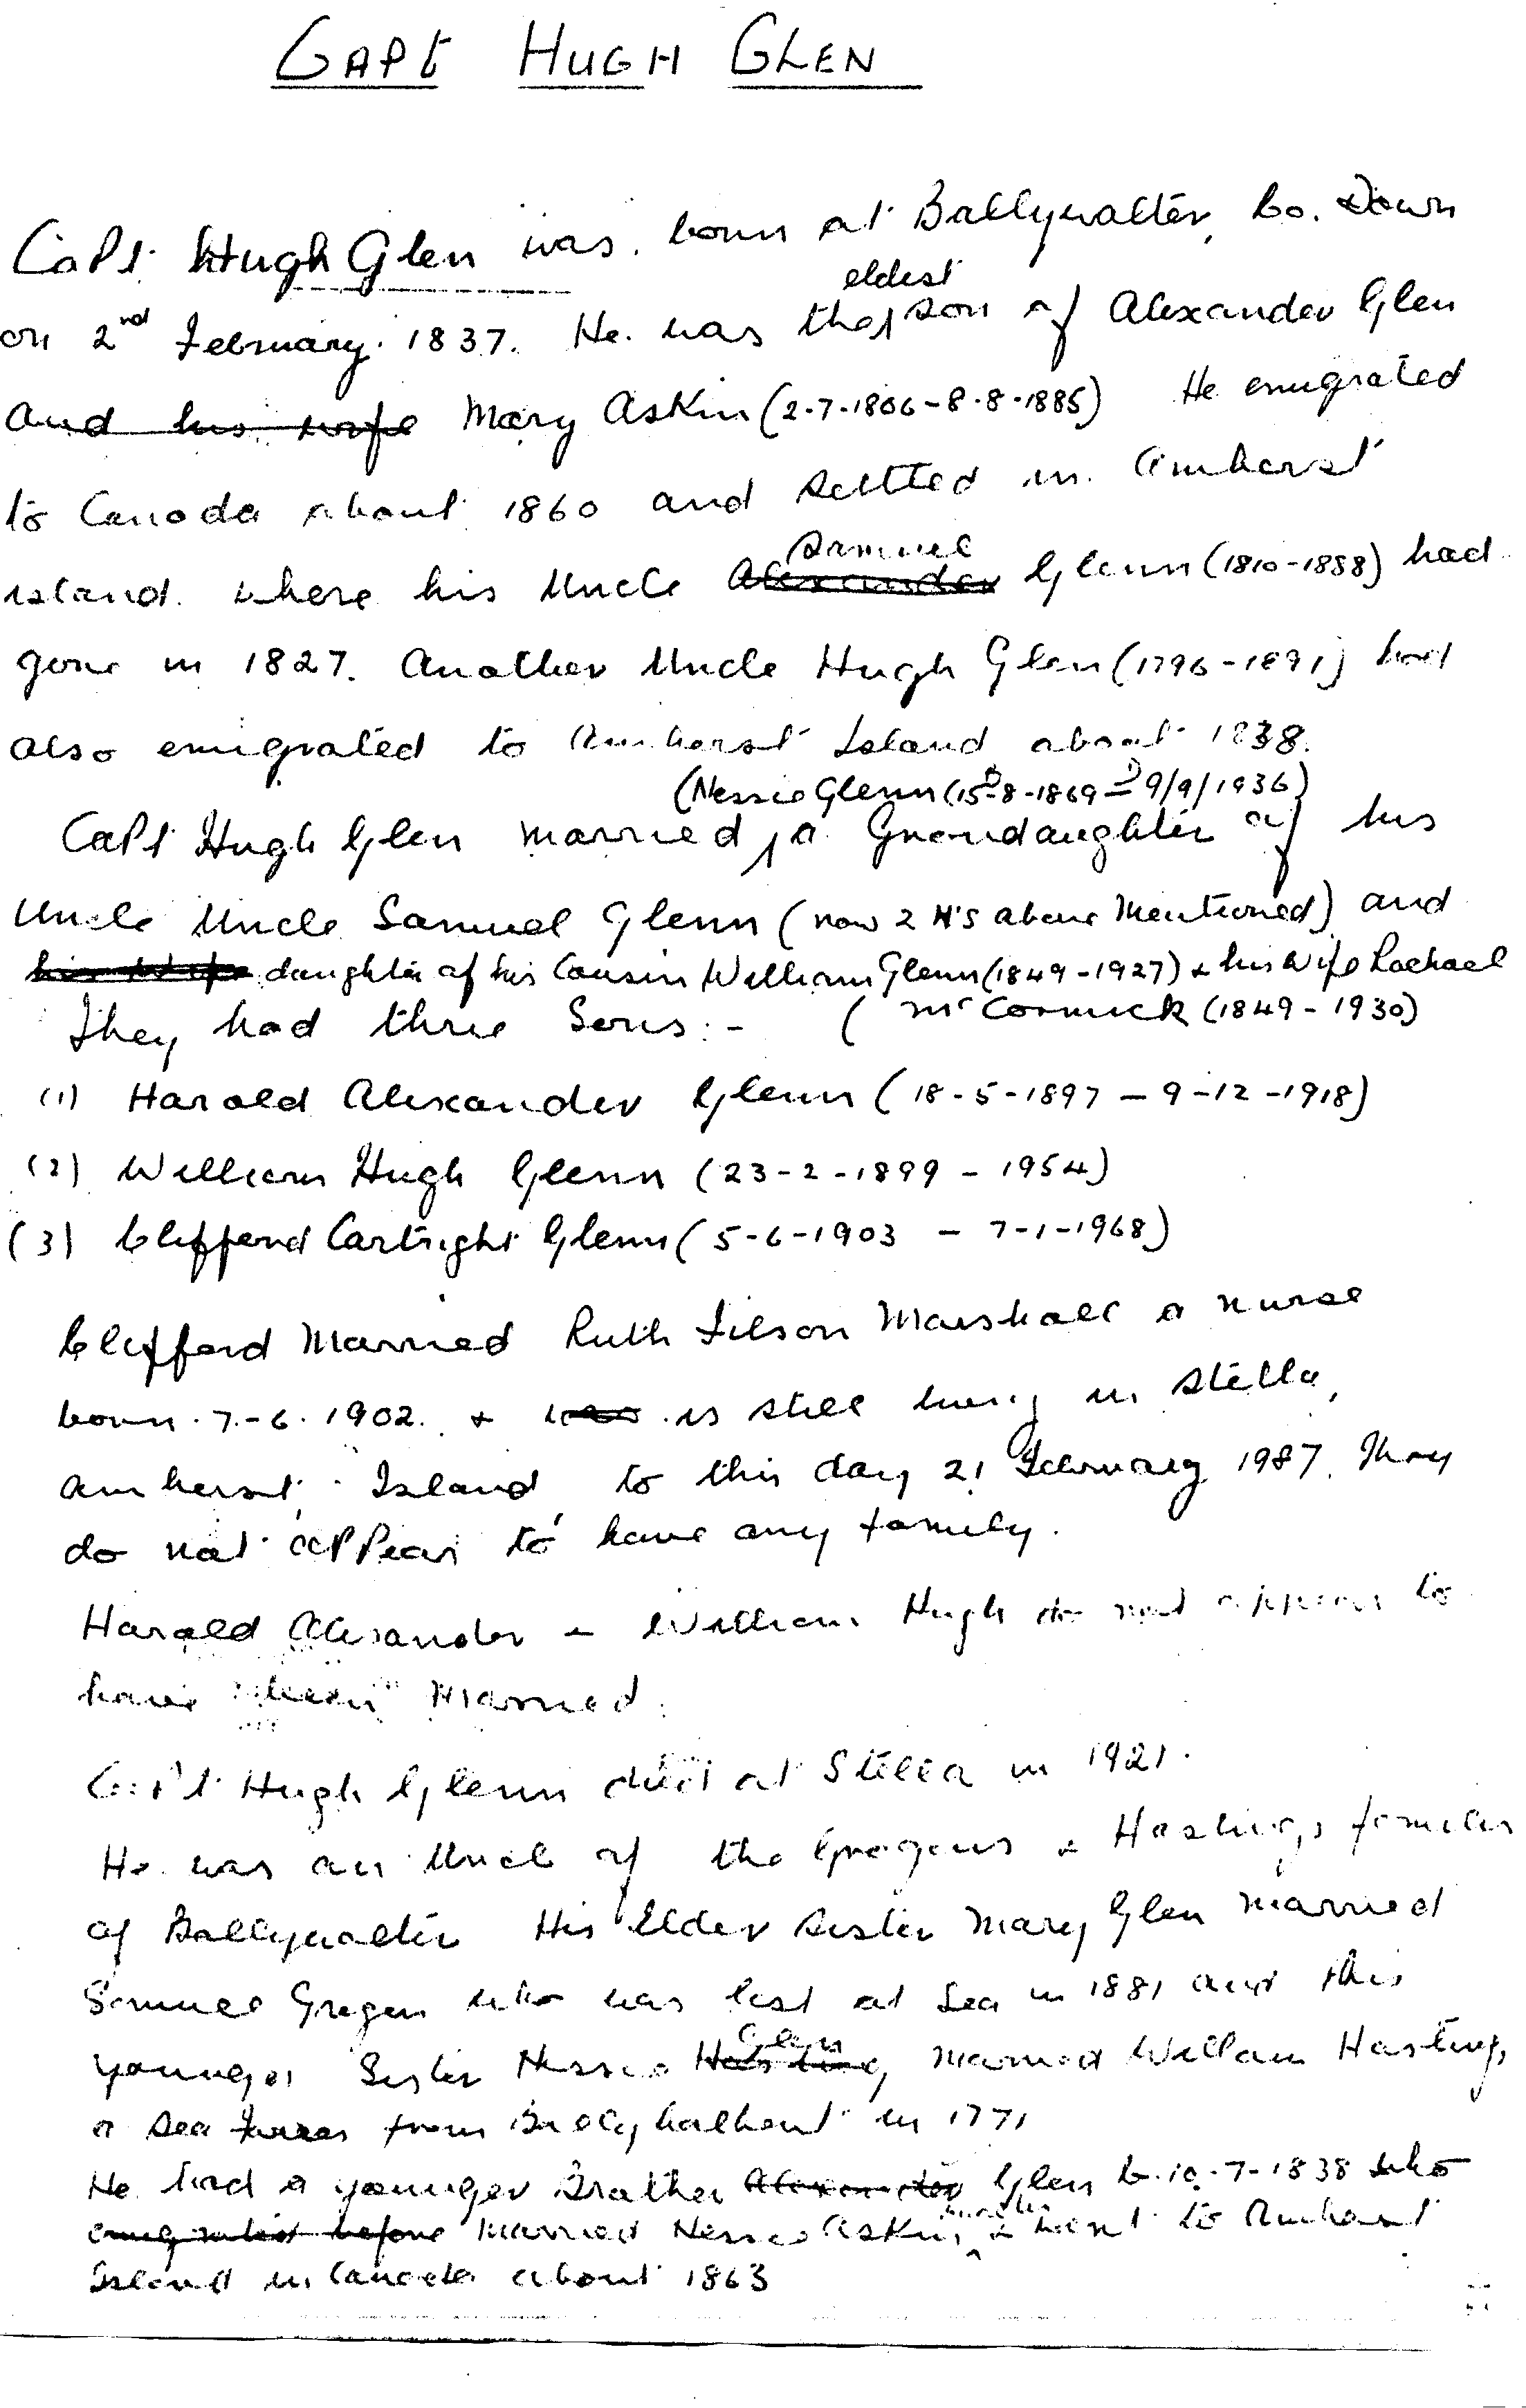 CAPT HUGH GLEN
Capt Hugh Glen was born at Ballywalter, Co. Down
eldest
on 2nd February 1837. He was the son of Alexander Glen
and his wife Mary Askin (2-7-1806-8-8-1885) He emigrated
to Canada about 1860 and settled in Amherst
Samuel
island where his Uncle Alexander Glenn (1810-1888) had
gone in 1827. Another Uncle Hugh Glen (1796-1891) had
also emigrated to Amherst Island about 1838.
(Nessie Glenn (15-8-1869 - 9/9/1936)
Capt Hugh Glen married a Grandaughter of his
Uncle Uncle Samuel Glenn (now 2 N's above Mentioned) and
his wife daughter of his Cousin William Glenn (1849-1927) & his wife Rachael
They had three Sons:- ( McCormick (1849-1930)
(1) Harold Alexander Glenn (18-5-1897 - 9-12-1918)
(2) William Hugh Glenn (23-2-1899 - 1954)
(3) Clifford Cartright Glenn (5-6-1903 - 7-1-1968)
Clifford Married Ruth Filson Marshall a nurse
born 7-6-1902. & was is still living in Stella,
Amherst Island to this day 21 February 1987. They
do not appear to have any family.
Harold Alexander & William Hugh do not appear to
have been Married.
Capt Hugh Glenn died at Stella in 1921.
He was an Uncle of the Grogans & Hastings families
of Ballywalter His Elder sister Mary Glen married
Samuel Grogan who was lost at Sea in 1881 and this
Glen
younger Sister Nessie Hasting married William Hastings
a Sea from Ballyhalbert in 1771
He had a younger Brother Alexander Glen b. 10-7-1838 who
emigrated before Married Nessie Askin & went to Amherst
Island in Canada about 1863